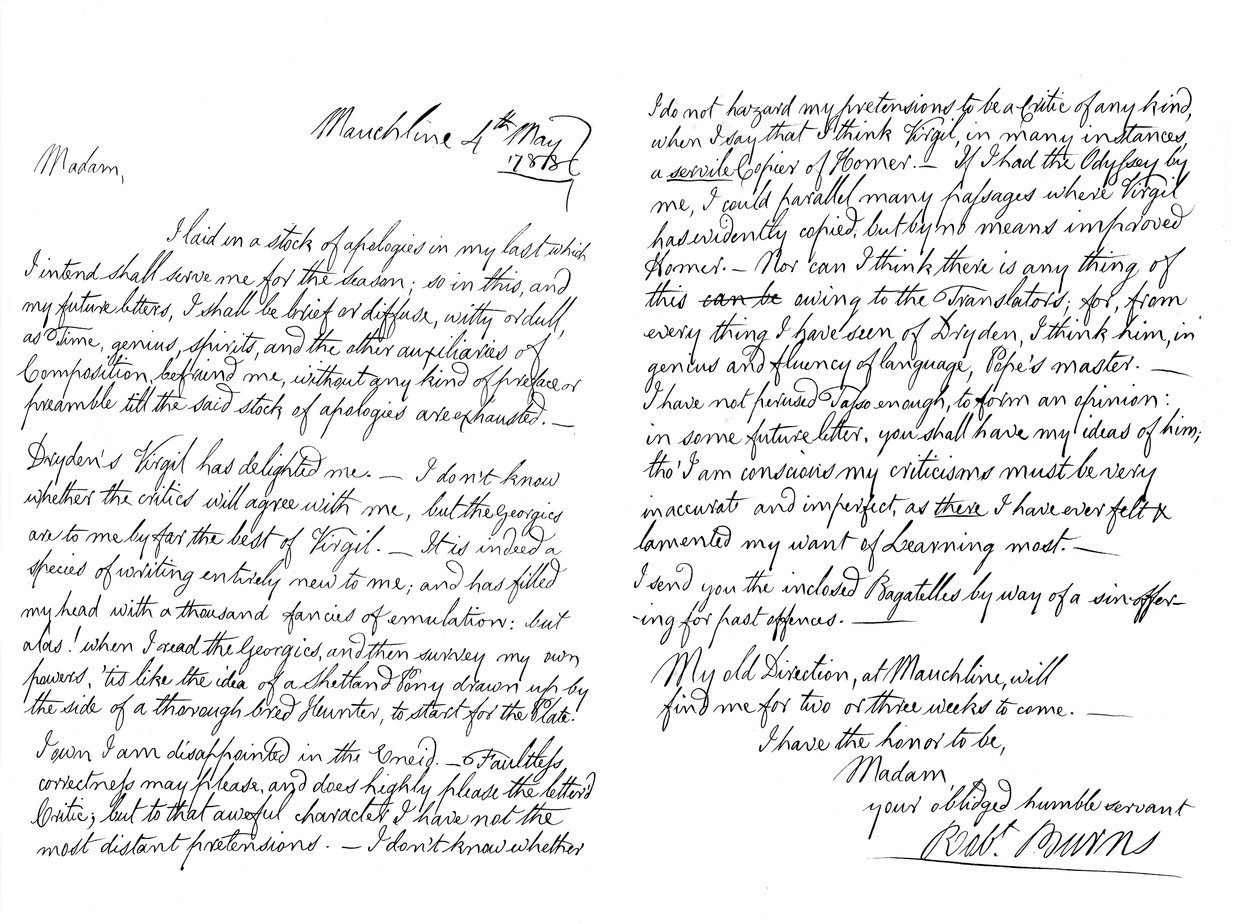 Mauchline 4th May
1788
Madam,
I laid in a stock of apologies in my last which
I intend shall serve me for the season; so in this, and
my future letters, I shall be brief or diffuse, witty or dull,
as Time, genius, spirits, and the other auxiliaries of
Composition, befriend me, without any kind of preface or
preamble till the said stock of apologies are exhausted. —
Dryden's Virgil has delighted me. — I don't know
whether the critics will agree with me, but the Georgics
are to me by far the best of Virgil. — It is indeed a
species of writing entirely new to me; and has filled
my head with a thousand fancies of emulation: but
alas! when I read the Georgics, and then survey my own
powers, 'tis like the idea of a Shetland Pony drawn up by
the side of a thorough bred Hunter, to start for the Plate.
I own I am disappointed in the Eneid. — Faultless,
correctness may please, and does highly please the letter'd
Critic; but to that aweful character I have not the
most distant pretensions. — I don't know whether
I do not hazard my pretensions to be a Critic of any kind,
when I say that I think Virgil, in many instances,
a servile Copier of Homer. — If I had the Odyssey by
me, I could parallel many passages where Virgil
has evidently copied, but by no means improved
Homer. — Nor can I think there is any thing of
this can be owing to the Translators; for, from
every thing I have seen of Dryden, I think him, in
genius and fluency of language, Pope's master. —
I have not perused Tasso enough, to form an opinion:
in some future letter, you shall have my ideas of him;
tho' I am conscious my criticisms must be very
inaccurate and imperfect, as there I have ever felt &
lamented my want of Learning most. —
I send you the inclosed Bagatelles by way of a sin-offer-
-ing for past offences. —
My old Direction, at Mauchline, will
find me for two or three weeks to come. —
I have the honor to be,
Madam
your oblidged humble servant
Robt. Burns